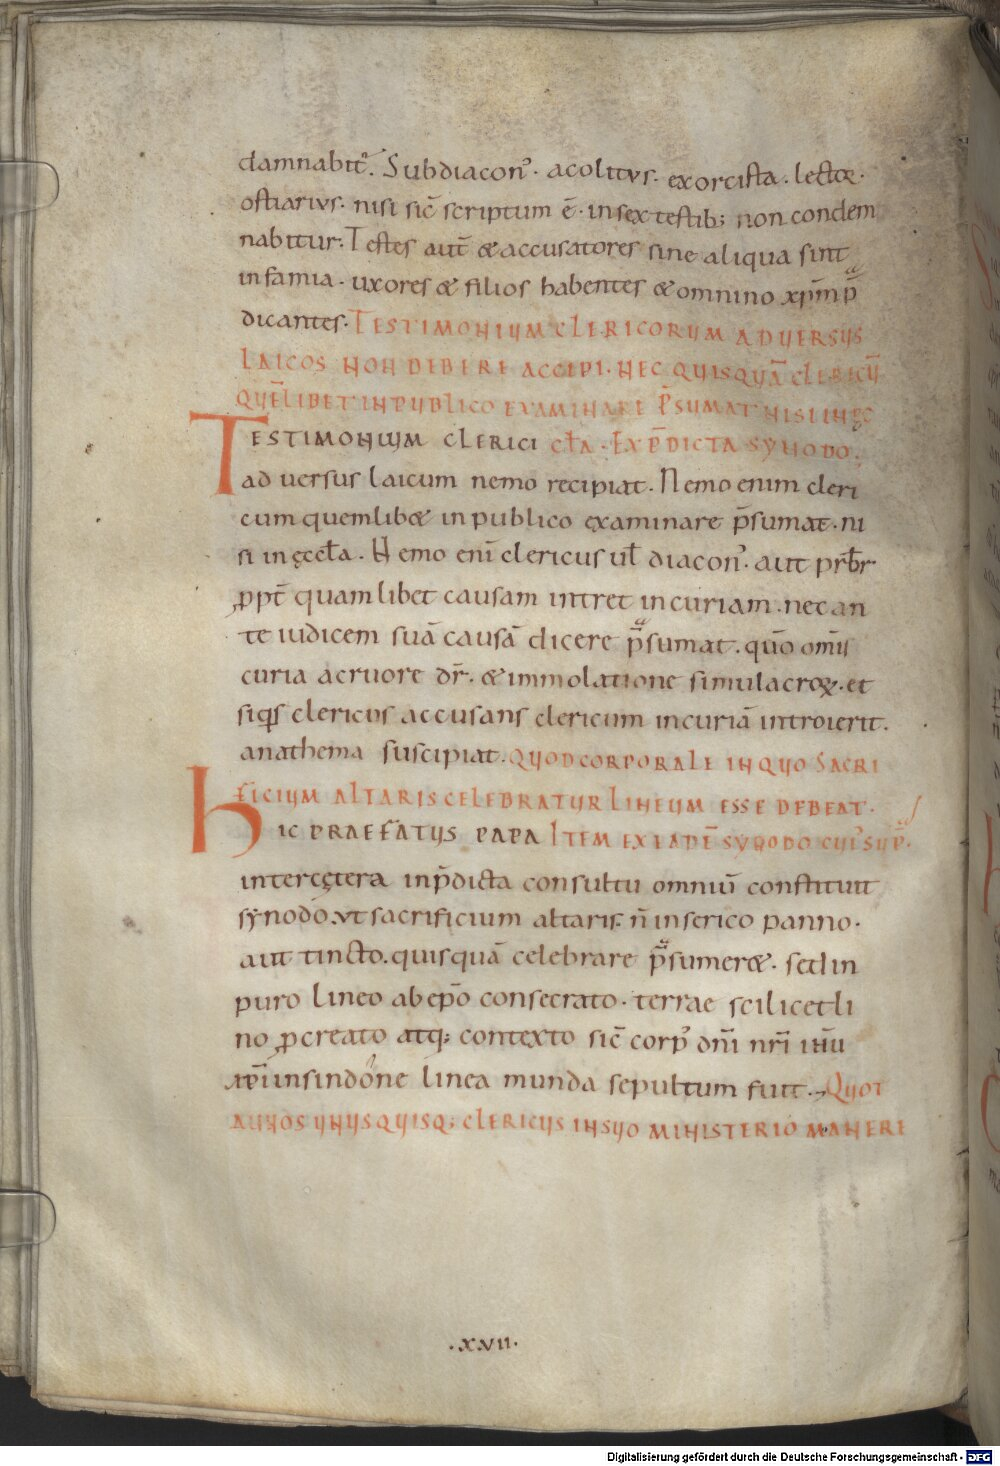 damnabit᷑. Subdiacon᾽. acolitus. exorcista. lector.
ostiarius. nisi sic̄ scriptum ē. insex testib; non condem
nabitur. Testes aut̄ & accusatores sine aliqua sint
infamia. uxores & filios habentes & omnino xp̄m p̄
dicantes. TESTIMONIUM CLERICORUM ADUERSUS
LAICOS NON DEBERE ACCIPI. NEC QUISQUĀ CLERICŪ
QUĒLIBET INPUBLICO EXAMINARE P̄SUMAT NISI INĘC
TESTIMONIUM CLERICI CŁA. EX P̄DICTA SYNODO.
aduersus laicum nemo recipiat. Nemo enim cleri
cum quemlib& in publico examinare p̄sumat. ni
si in ęccła. Nemo eni᷑ clericus uł diacon᾽. aut pr̄br
ꝓpt̄ quamlibet causam intret incuriam. nec an
te iudicem suā causā dicere p̄sumat. quō omīs
curia acruore dr̄. & immolatione simulacroꝝ. et
siq̄s clericus accusans clericum incuriā introierit.
anathema suscipiat. QUOD CORPORALE INQUO SACRI
FICIUM ALTARIS CELEBRATUR LINEUM ESSE DEBEAT.
HIC PRAEFATUS PAPA ITEM EX EADĒ SYNODO CUI᾽ SUP̄.
intercętera inp̄dicta consultu omniū constituit
synodo. ut sacrificium altaris. n̄ inserico panno.
aut tincto. quisquā celebrare p̄sumer&. sed in
puro lineo ab ep̄o consecrato. terrae scilicet li
no ꝓcreato atq; contexto sic̄ corp᾽ dnī nrī ihū
xp̄i insindone linea munda sepultum fuit. QUOT
ANNOS UNUSQUISQ; CLERICUS INSUO MINISTERIO MANERE
.xvii.
Digitalisierung gefördert durch die Deutsche Forschungsgemeinschaft - DFG